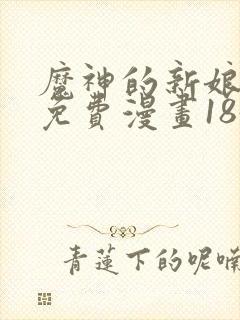 魔神的新娘
免費漫畫18
青蓮下的呢喃